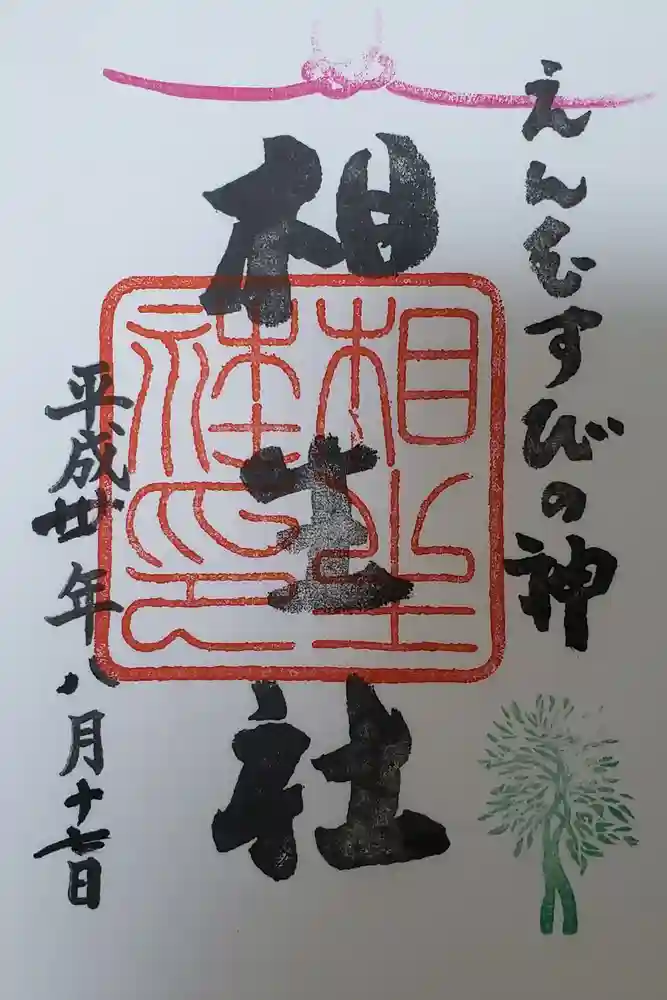 えんむすびの神
相生社
相生社印
平成卅年八月十七日